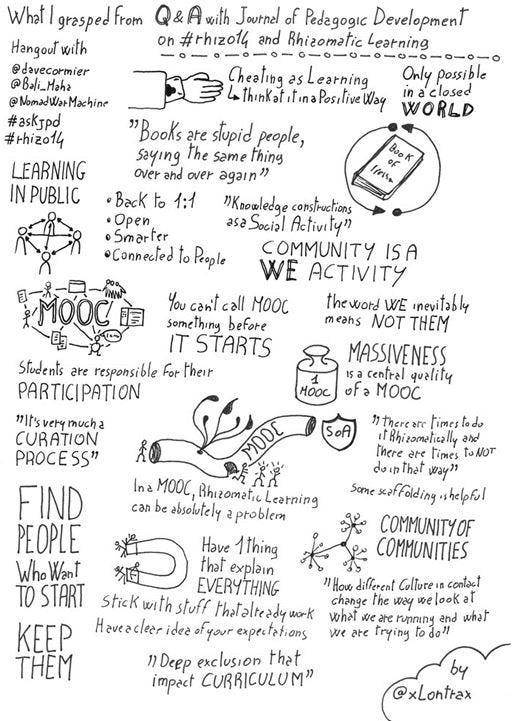 What I grasped from Q & A with Journal of Pedagogic Development
on #rhizo14 and Rhizomatic Learning
Hangout with
@davecormier
@Bali_Maha
@NomadWarMachine
#askjpd
#rhizo14
Cheating as Learning
↳ think at it in a Positive Way
Only possible
in a closed
WORLD
"Books are stupid people,
saying the same thing
over and over again"
Book
of
LEARNING
IN PUBLIC
• Back to 1:1
• Open
• Smarter
• Connected to People
"Knowledge constructions
as a Social Activity"
COMMUNITY IS A
WE ACTIVITY
MOOC
You can't call MOOC
something before
IT STARTS
the word WE inevitably
means NOT THEM
Students are responsible for their
PARTICIPATION
1
MOOC
MASSIVENESS
is a central quality
of a MOOC
"It's very much a
CURATION
PROCESS"
MOOC
SOA
"there are times to do
it Rhizomatically and
there are times to NOT
do in that way"
Some scaffolding is helpful
In a MOOC, Rhizomatic Learning
can be absolutely a problem
FIND
PEOPLE
Who Want
TO START
KEEP
THEM
Have 1 thing
that explain
EVERYTHING
Stick with stuff that already work
Have a clear idea of your expectations
COMMUNITY OF
COMMUNITIES
"How different Culture in contact
change the way we look at
what we are running and what
we are trying to do"
"Deep exclusion that
impact CURRICULUM"
by
@xLontrax